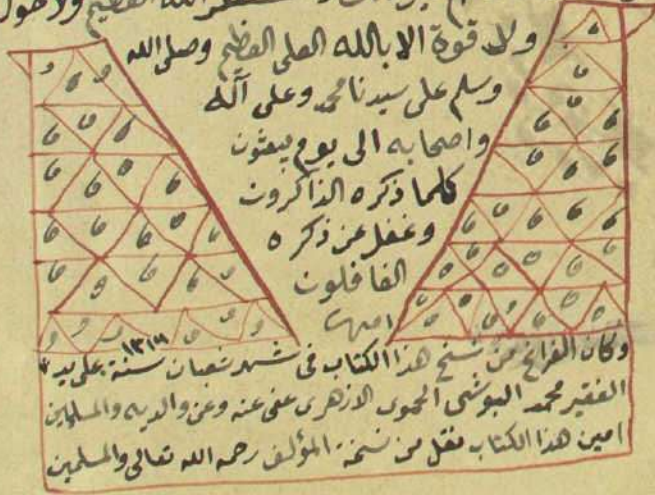 الله العظيم ولا حول
ولا قوة الا بالله العلي العظيم وصلى الله
وسلم على سيدنا محمد وعلى آله
واصحابه الى يوم يبعثون
كلما ذكره الذاكرون
وغفل عن ذكره
الغافلون
امين
وكان الفراغ من نسخ هذا الكتاب في شهر شعبان سنة على يد
الفقير محمد البوشي الحموي الازهري عفى عنه وعن والديه والمسلمين
امين هذا الكتاب نقل من نسخة المؤلف رحمه الله تعالى والمسلمين